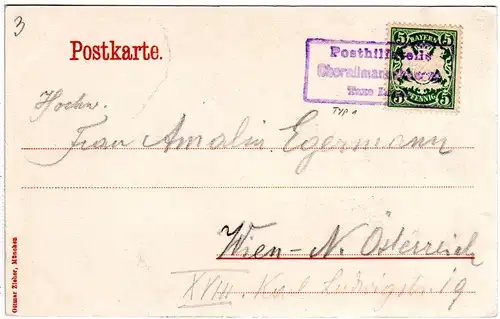 3
Postkarte.
Posthilfstelle
Taxe
BAYERN
5 5
5 PFENNIG 5
TYP 1
Hochw.
Frau Amalia Egermann
Wien - N. Österreich
XVIII. Karl Ludwigstr. 19
Ottmar Zieher, München